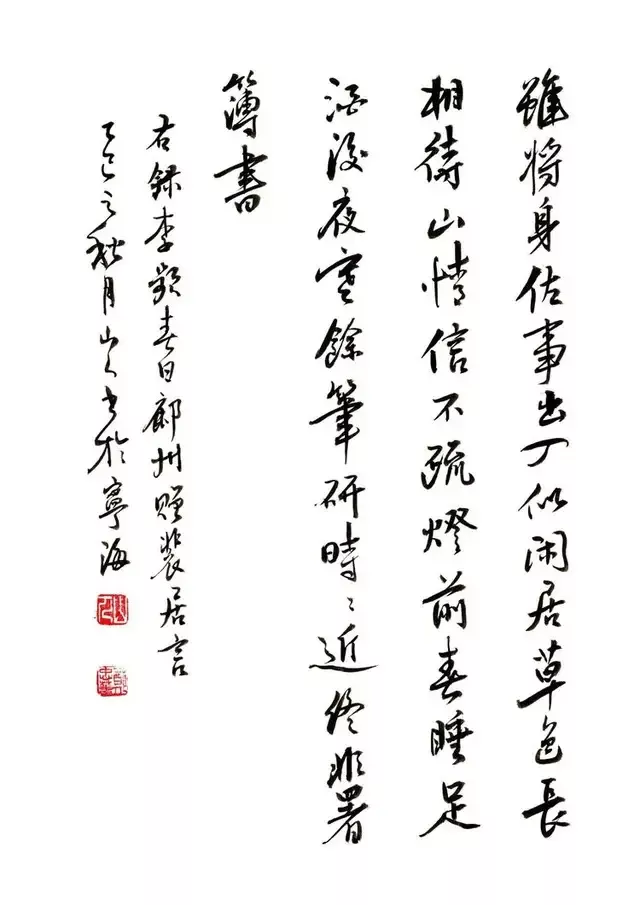 雖將身佐事出丁似闲居草色長
相待山情信不疏燈前春睡足
酒後夜寒餘筆研時〻近終非署
簿書
右録李頻春日鄜州贈裴居言
乙巳之秋月山人书於寧海